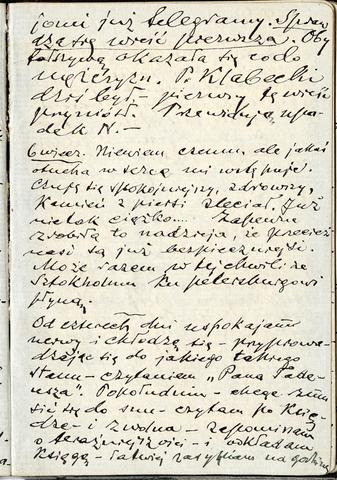 jomi już telegramy. Spraw
dza się wieść pierwsza. Oby
fałszywą okazała się co do
mężczyzn. P. Klabecki
dziś był – pierwszy tę wieść
przyniósł. Przewidują upa-
dek N. –
6 wiecz. Niewiem czemu, ale jakaś
otucha w serce mi wstępuje.
Czuję się spokojniejszy, zdrowszy,
Kamień z piersi zleciał. Już
nie tak ciężko.... Zapewne
zrobiła to nadzieja, że przecież
nasi są już bezpieczniejsi.
Może razem w tej chwili ze
Sztokholmu ku petersburgowi
płyną,
Od czterech dni uspokajam
nerwy i chłodzę się – przyprowa-
dzając się do jakiego takiego
stanu – czytaniem „Pana Tade-
usza". Popołudniu – chcąc zmu
sić się do snu – czytam po Księ-
dze – i zwolna – zapominam
o teraźniejszości – i odkładam
Księgę – łatwiej zasypiam na godzinę